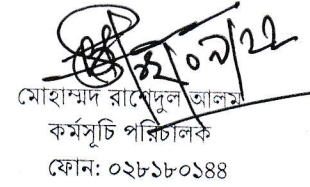 মোহাম্মদ রাশেদুল আলম
কর্মসূচি পরিচালক
ফোন: ০২৮১৮০১৪৪